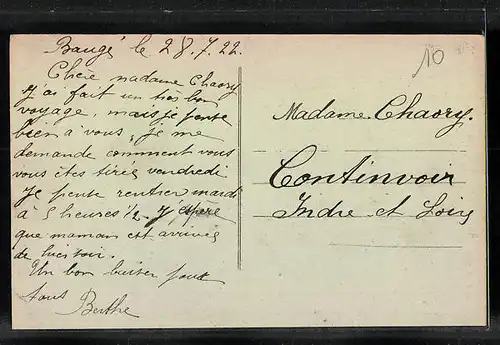 Baugé le 28.7.22.
Chère madame Chaory
j'ai fait un très bon
voyage, mais je pense
bien à vous, je me
demande comment vous
vous êtes tirés vendredi
Je pense rentrer mardi
à 5 heures 1/2 j'espère
que maman est arrivée
de hier soir.
Un bon baiser pour
tous Berthe
10
Madame Chaory.
Continvoir
Indre et Loire